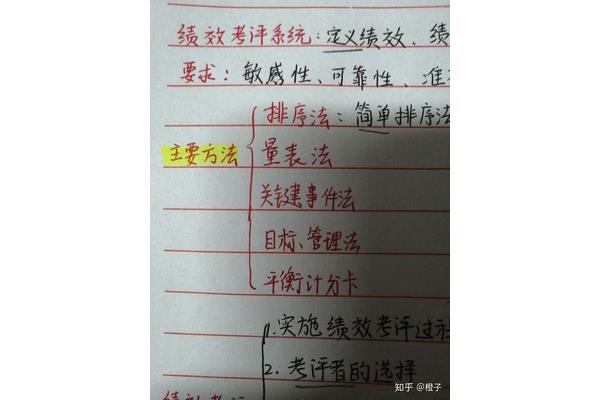 绩效考评系统：定义绩效、绩
要求：敏感性、可靠性、准
排序法：简单排序法
主要方法
量表法
关键事件法
目标、管理法
平衡计分卡
1.实施绩效考评过
2.考评者的选择
绩效考
知乎 @橙子